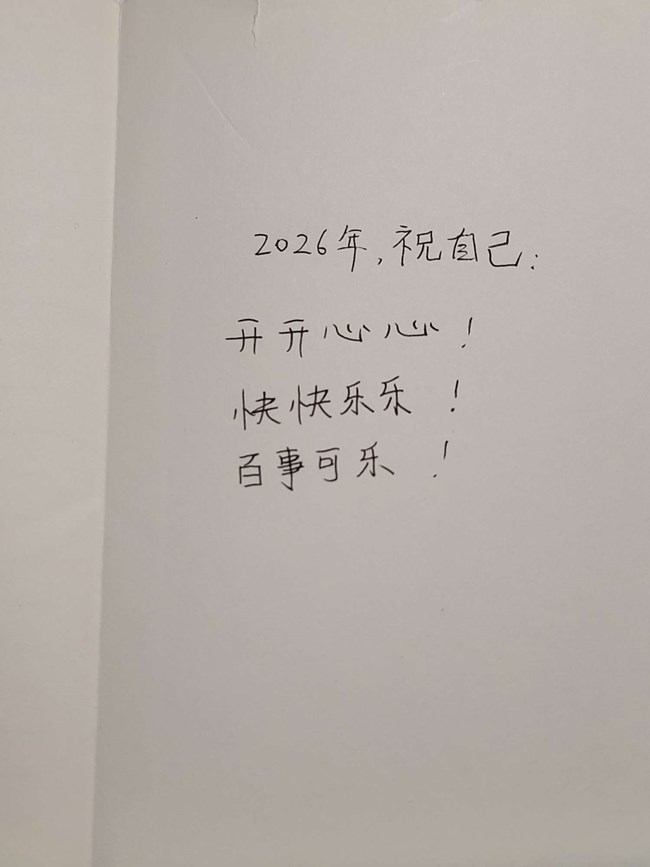 2026年,祝自己:
开开心心!
快快乐乐!
百事可乐!